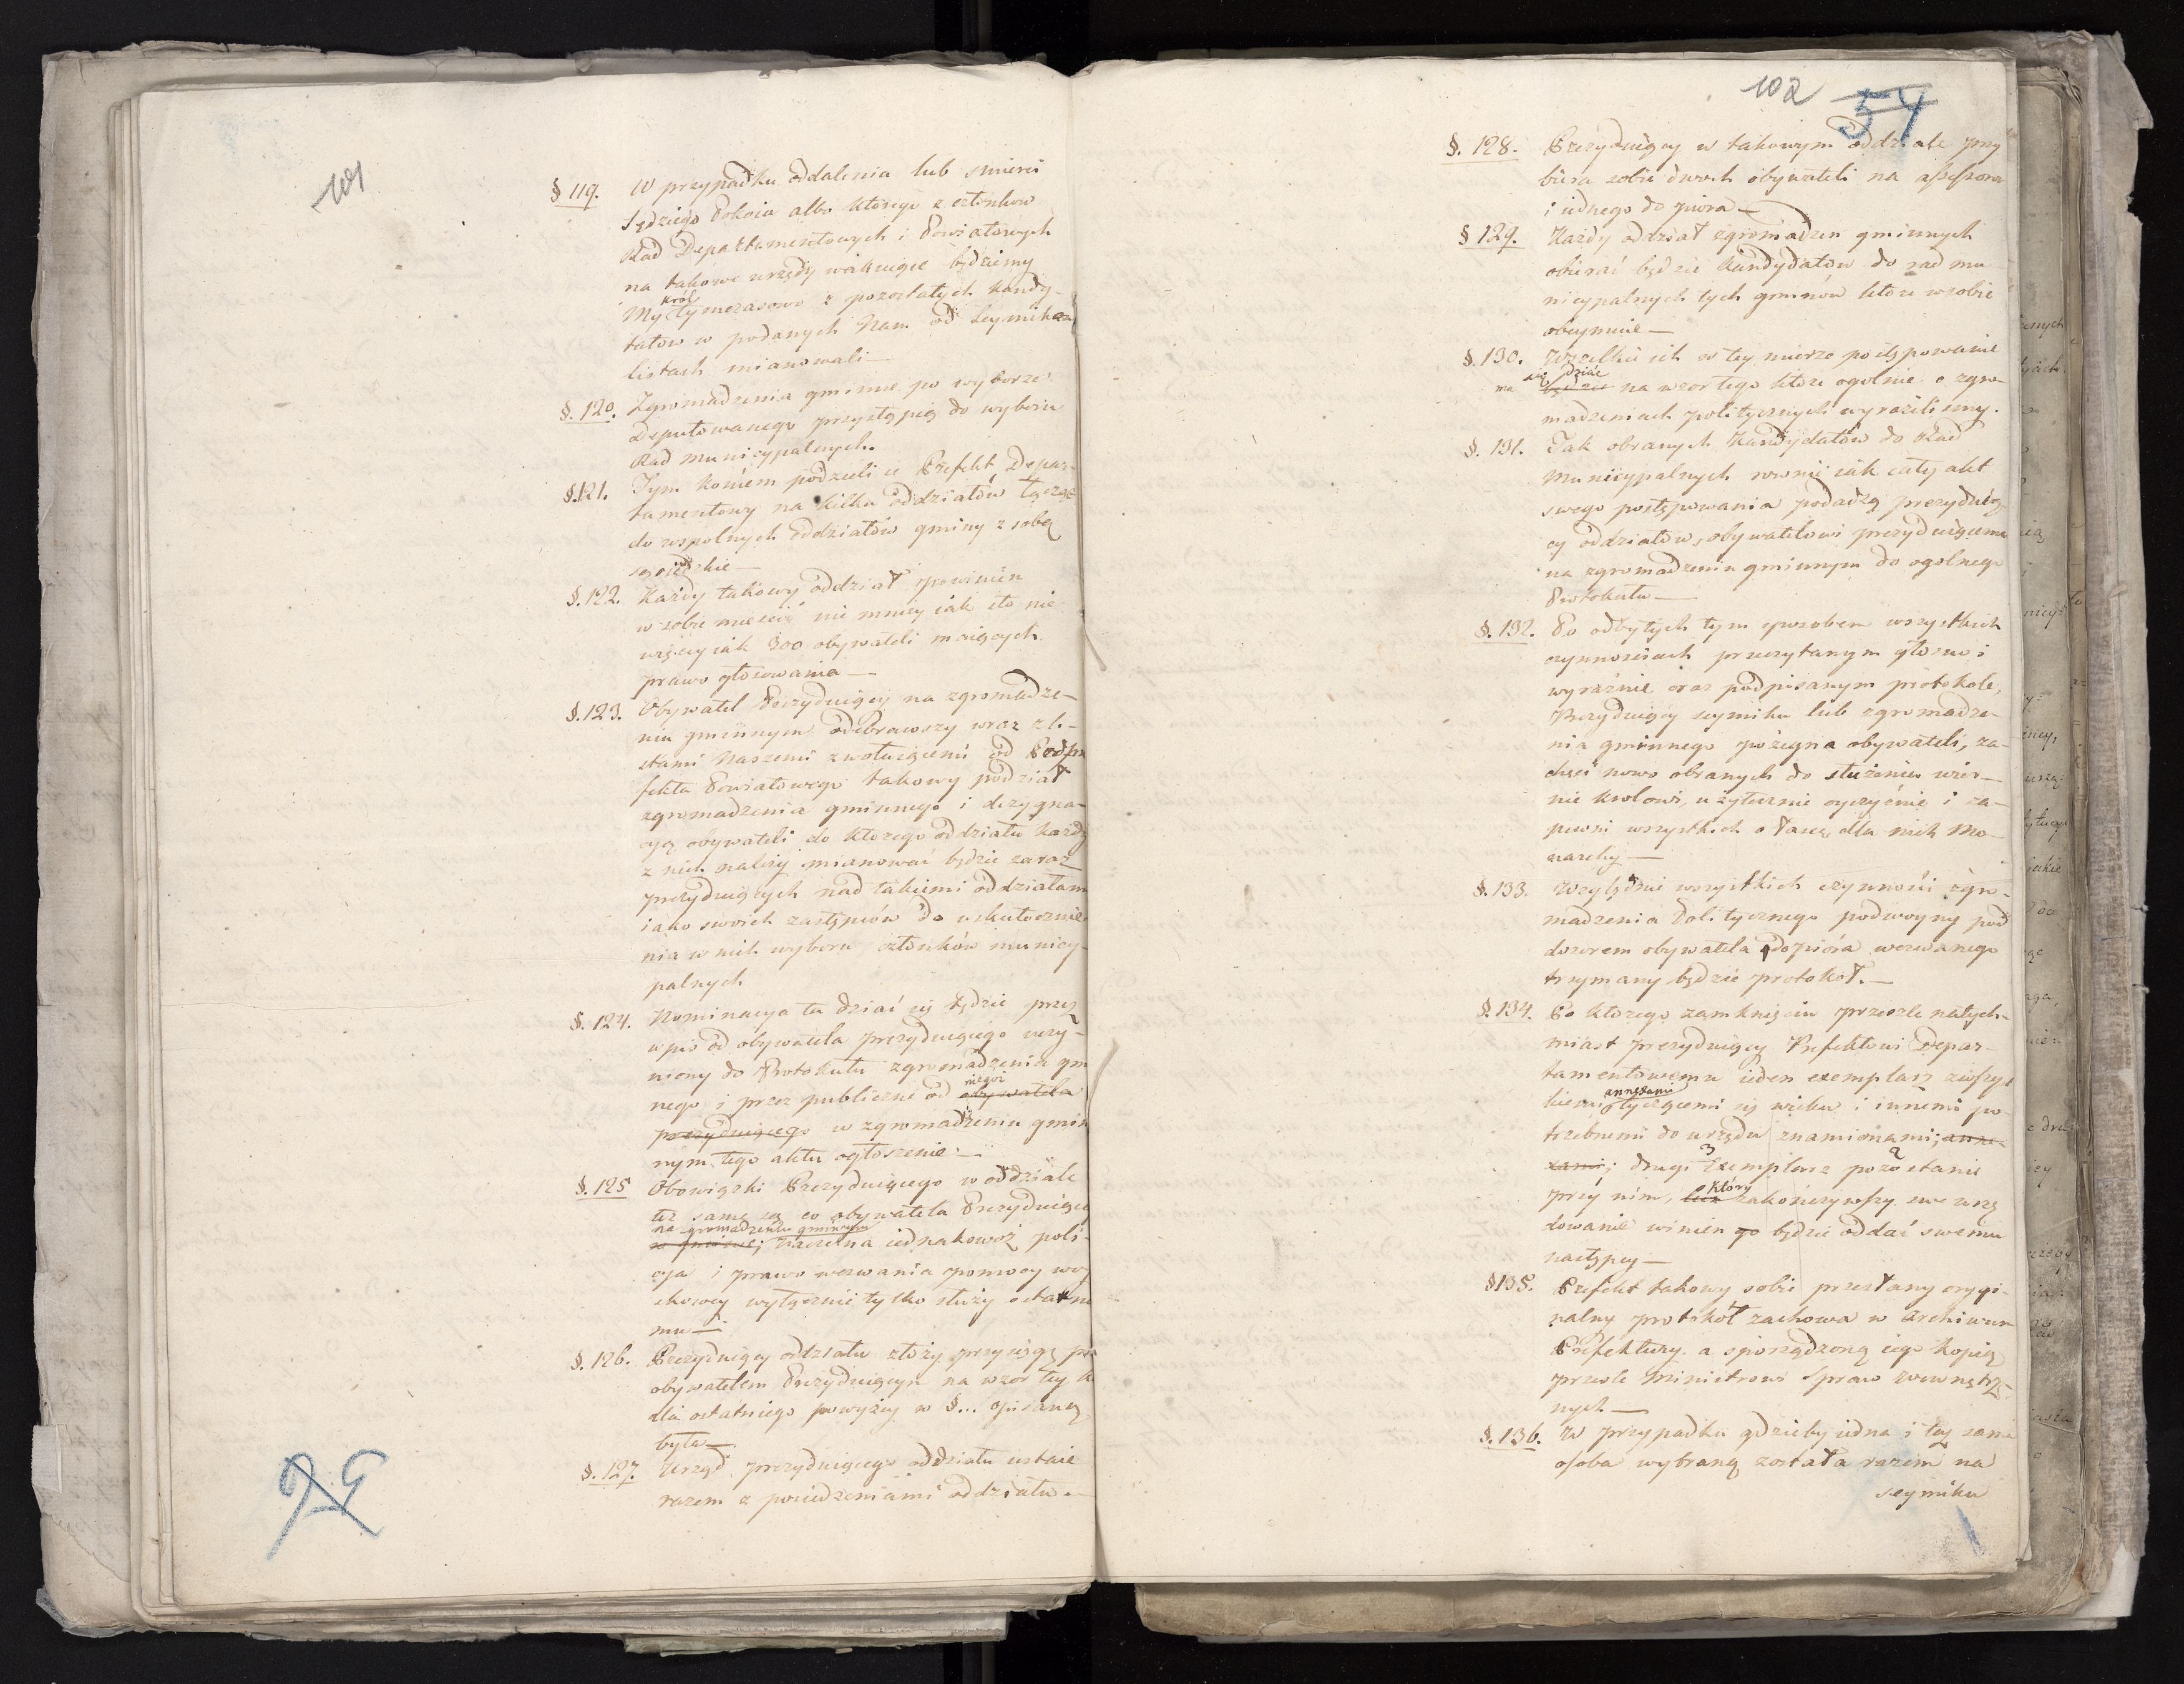 101
§ 119. W przypadku oddalenia lub smierci
Sędziego Pokoiu albo którego z członkow
Rad Departamentowych i Powiatowych
na takowe urzędy wakuiące będziemy
król
My tymczasowo z pozostałych kandy-
tatow w podanych Nam od Seymikow
listach mianowali —
§. 120. Zgromadzenia gminne po wyborze
Deputowanego przystąpią do wyboru
Rad Municypalnych.
§. 121. Tym koncem podzieli ie Prefekt Depar-
tamentowy na kilka oddziałów łącząc
do wspolnych oddziałów gminy z sobą
sąsiedzkie —
§. 122. Każdy takowy oddział powinien
w sobie mieścić nie mniey iak sto nie
więcey iak 300 obywateli maiących
prawo głosowania —
§. 123. Obywatel Prezyduiący na zgromadze-
niu gminnym odebrawszy wraz z li-
stami Naszemi zwołuiącemi od Podpre
fekta Powiatowego takowy podział
zgromadzenia gminnego i dezygna-
cyą obywateli do ktorego oddziału każdy
z nich należy mianować będzie zaraz
prezyduiących nad takiemi oddziałam
iako swoich zastępców do uskutecznie
nia w nich wyboru członków municy-
palnych
§. 124. Nominacya ta dziać się będzie przez
wpis od obywatela prezyduiącego uczy-
niony do Protokułu zgromadzenia gm
niegoż
nego i przez publiczne od obywatela
prezyduiącego w zgromadzeniu gmin
nym tego aktu ogłoszenie —
§. 125 Obowiązki Prezyduiącego w oddziale
też same są co obywatela Prezyduiące
na zgromadzeniu gminnym
w gminie; Naczelna iednakowoż poli-
cya i prawo wezwania pomocy woy
skowey wyłącznie tylko służy ostatnie
mu —
§. 126. Prezyduiący oddziału złoży przysięgę prz
obywatelem Prezyduiącym na wzór tey k
dla ostatniego powyżey w §... opisaną
była —
§. 127. Urząd prezyduiącego oddziału ustaie
razem z posiedzeniami oddziału —
95
102
54
§. 128. Prezyduiący w takowym oddziale przy
biera sobie dwoch obywateli na assessorow
i iednego do piora —
§ 129. Każdy oddział zgromadzen gminnych
obierać będzie kandydatow do rad mu
nicypalnych tych gminów ktore w sobie
obeymuie —
§. 130. Wszelkie ich w tey mierze postępowanie
ma się dziać
będzie na wzor tego ktore ogolnie o zgro-
madzeniach politycznych wyraziliśmy.
§. 131. Tak obranych Kandydatów do Rad
Municypalnych rownie iak cały akt
swego postępowania podadzą prezyduią
cy oddziałow, obywatelowi prezyduiącemu
na zgromadzeniu gminnym do ogolnego
Protokułu —
§. 132. Po odbytych tym sposobem wszystkich
czynnościach przeczytanym głosno i
wyraźnie oraz podpisanym protokole,
Prezyduiący seymiku lub zgromadze-
nia gminnego pożegna obywateli, za-
chęci nowo obranych do służenia wier-
nie krolowi, użytecznie oyczyznie i za-
pewni wszystkich o łasce dla nich Mo-
narchy —
§. 133. Względnie wszystkich czynności zgro-
madzenia Politycznego podwoyny pod
dozorem obywatela do pióra wezwanego
trzymany będzie protokoł. —
§. 134. Po ktorego zamknięciu przeszle natych-
miast prezyduiący Prefektowi Depar-
tamentowemu ieden exemplarz zwszyst
annexami
kiemi tyczącemi się wieku i innemi po-
trzebnemi do urzędu znamionami; anne-
xami; drugi Exemplarz pozostanie
3 2
który
przy nim, lecz zakończywszy swe urzę
dowanie winien go będzie oddać swemu
następcy —
§ 135. Prefekt takowy sobie przesłany orygi-
nalny protokoł zachowa w Archiwum
Prefektury a sporządzoną iego kopią
przesle Ministrowi Spraw Wewnętrz-
nych —
§. 136. W przypadku gdzieby iedna i taż sama
osoba wybraną została razem na
seymiku